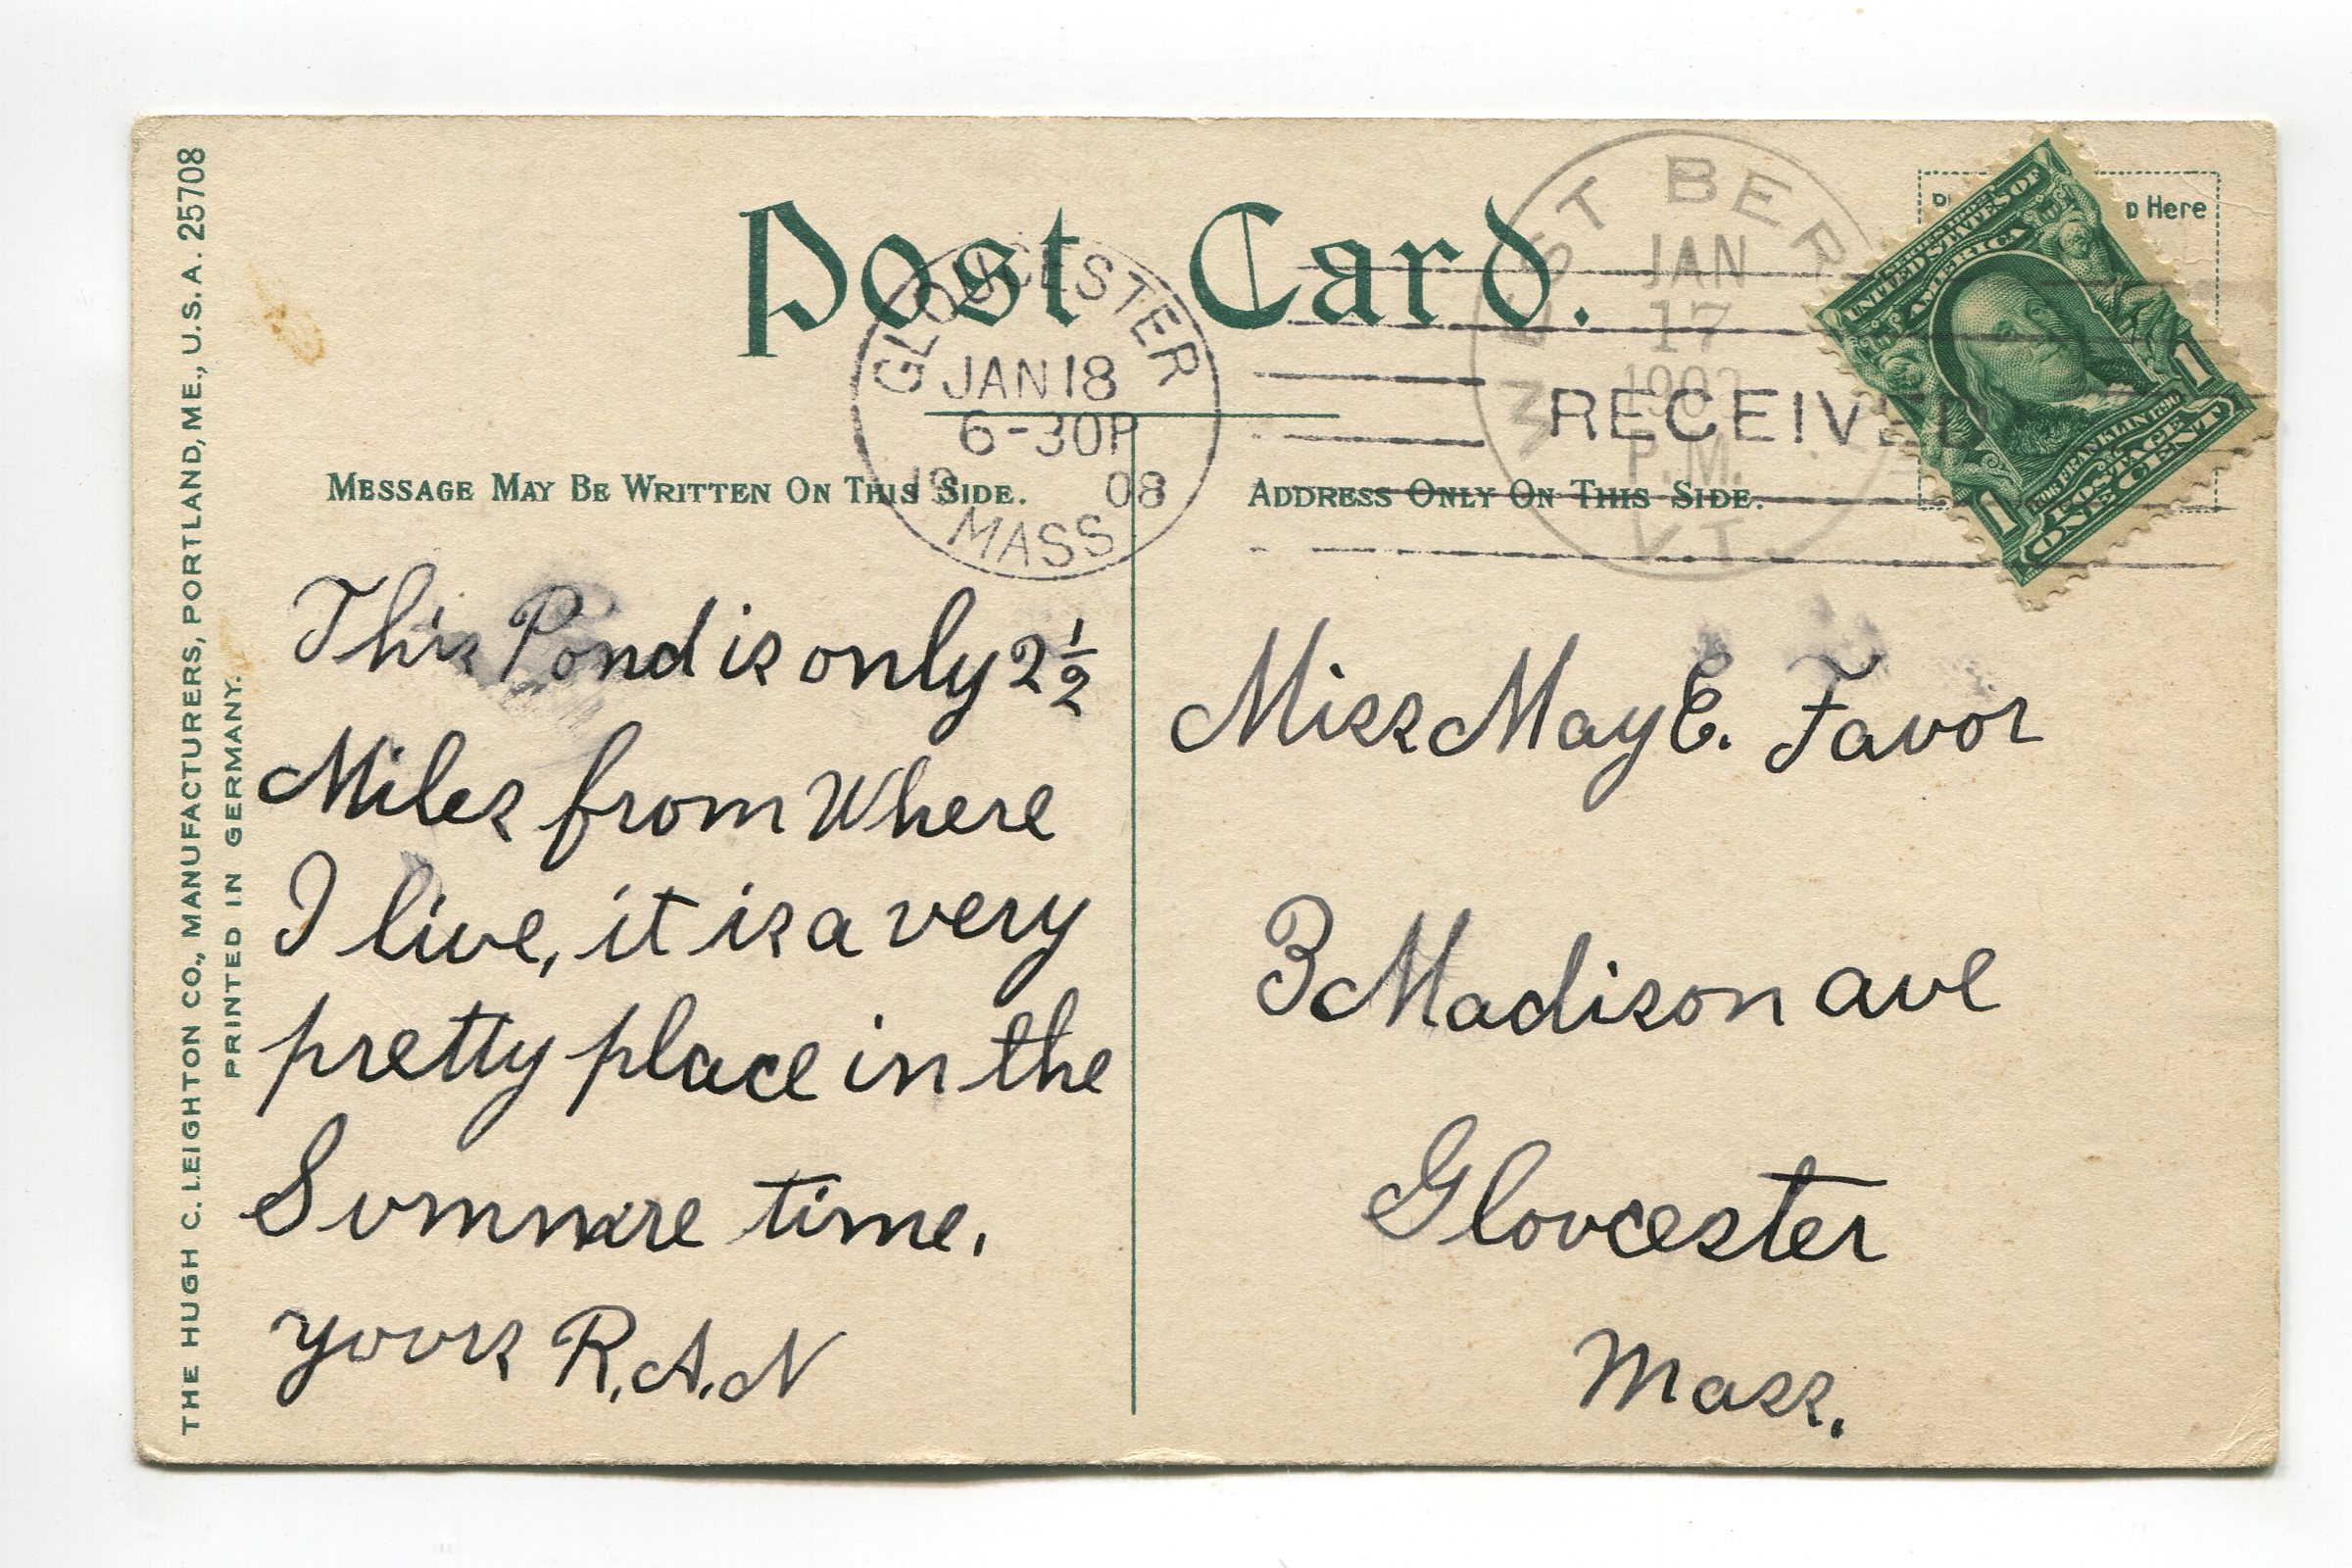 THE HUGH C. LEIGHTON CO., MANUFACTURERS, PORTLAND, ME., U.S.A. 25708
PRINTED IN GERMANY.
Post Card.
GLOUCESTER
JAN 18
6-30P
19 08
MASS
WEST BER
JAN
17
P.M.
VT.
RECEIVED
D Here
UNITED STATES OF
AMERICA
1 1
FRANKLIN 1790
POSTAGE
ONE CENT
MESSAGE MAY BE WRITTEN ON THIS SIDE.
ADDRESS ONLY ON THIS SIDE.
This Pond is only 2 1/2
Miles from Where
I live, it is a very
pretty place in the
Summere time.
yours R.A.N
Miss May E. Favor
3 Madison ave
Gloucester
Mass.